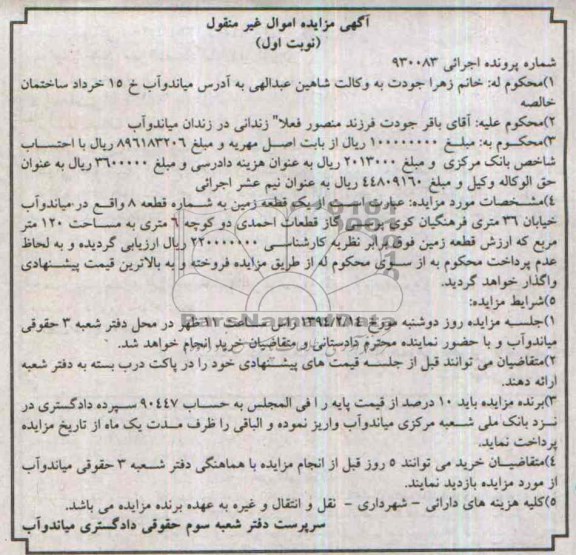 آگهی مزایده اموال غیر منقول
(نوبت اول)
شماره پرونده اجرائی ۹۳۰۰۸۳
۱)محکوم له: خانم زهرا جودت به وکالت شاهین عبدالهی به آدرس میاندوآب خ ۱۵ خرداد ساختمان
خالصه
۲)محکوم علیه: آقای باقر جودت فرزند منصور فعلا" زندانی در زندان میاندوآب
۳)محکوم به: مبلغ ۱۰۰۰۰۰۰۰۰ ریال از بابت اصل مهریه و مبلغ ۸۹۶۱۸۳۲۰۶ ریال با احتساب
شاخص بانک مرکزی و مبلغ ۲۰۱۳۰۰۰ ریال به عنوان هزینه دادرسی و مبلغ ۳۶۰۰۰۰۰ ریال به عنوان
حق الوکاله وکیل و مبلغ ۴۴۸۰۹۱۶۰ ریال به عنوان نیم عشر اجرائی
۴)مشخصات مورد مزایده: عبارت است از یک قطعه زمین به شماره قطعه ۸ واقع در میاندوآب
خیابان ۳۶ متری فرهنگیان کوی گاز قطعات احمدی دو کوچه ۶ متری به مساحت ۱۲۰ متر
مربع که ارزش قطعه زمین فوق برابر نظریه کارشناسی ۲۲۰۰۰۰۰۰۰ ریال ارزیابی گردیده و به لحاظ
عدم پرداخت محکوم به از سوی محکوم له از طریق مزایده فروخته و به بالاترین قیمت پیشنهادی
واگذار خواهد گردید.
۵)شرایط مزایده:
۱)جلسه مزایده روز دوشنبه مورخ راس ساعت ظهر در محل دفتر شعبه ۳ حقوقی
میاندوآب و با حضور نماینده محترم دادستانی و متقاضیان خرید انجام خواهد شد.
۲)متقاضیان می توانند قبل از جلسه قیمت های پیشنهادی خود را در پاکت درب بسته به دفتر شعبه
ارائه دهند.
۳)برنده مزایده باید ۱۰ درصد از قیمت پایه را فی المجلس به حساب ۹۰۴۴۷ سپرده دادگستری در
نزد بانک ملی شعبه مرکزی میاندوآب واریز نموده و الباقی را ظرف مدت یک ماه از تاریخ مزایده
پرداخت نماید.
۴)متقاضیان خرید می توانند ۵ روز قبل از انجام مزایده با هماهنگی دفتر شعبه ۳ حقوقی میاندوآب
از مورد مزایده بازدید نمایند.
۵)کلیه هزینه های دارائی - شهرداری - نقل و انتقال و غیره به عهده برنده مزایده می باشد.
سرپرست دفتر شعبه سوم حقوقی دادگستری میاندوآب